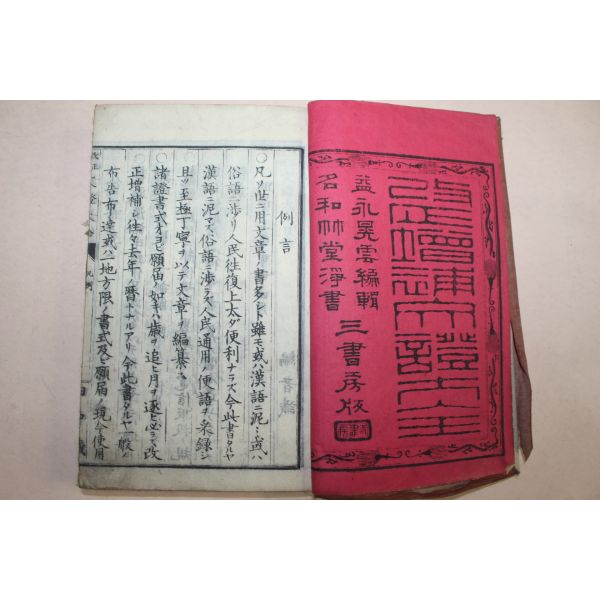 改正増補文證大全
益永晃雲編輯
名和竹堂淨書
三書房版
例言
○凡ソ世ニ用文章ノ書多シト雖モ或ハ漢語ニ泥ミ或ハ
俗語ニ渉リ人民往復上太ダ便利ナラズ今此書タルヤ
漢語ニ泥マズ俗語ニ渉ラズ人民通用ノ便語ヲ采録シ
且ツ至極丁寧ヲ以テ文章ヲ編纂ス
○諸證書式オヨビ願届ノ如キハ歳ヲ追ヒ月ヲ逐ヒ必ラズ改
正増補シ往々去年ノ暦トナルアリ今此書タルヤ一般ノ
布告布達或ハ一地方限ノ書式及ビ願届ノ現今使用